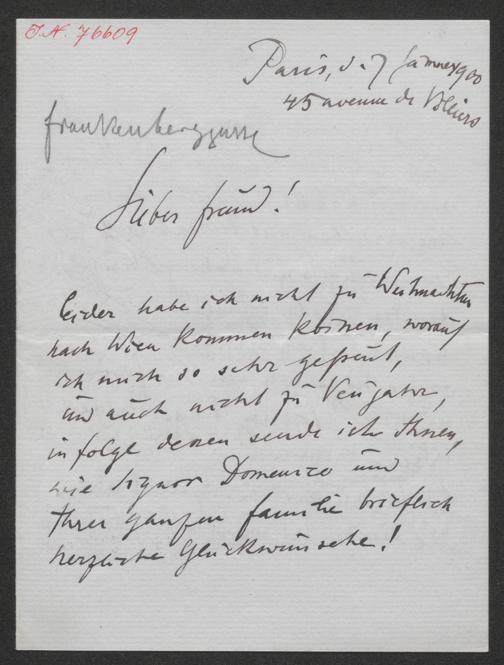 J.N. 76609
Paris, d. 7 Jänner 900
45 avenue de Villiers
Frankenberggasse
Lieber Freund!
Leider habe ich nicht zu Weihnachten
nach Wien kommen können, worauf
ich mich so sehr gefreut,
und auch nicht zu Neujahr,
in folge dessen sende ich Ihnen,
wie Signor Domenico und
Ihrer ganzen Familie brieflich
herzliche Glückwünsche!